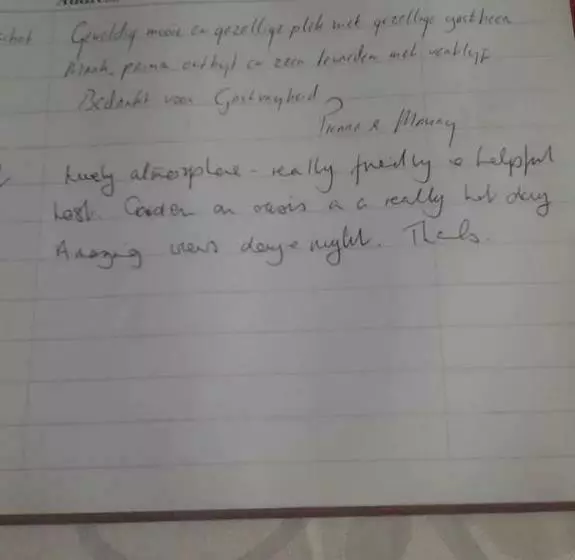 Geweldig mooie en gezellige plek met gezellige gastheer
prima ontbijt en zeer tevreden met verblijf
Bedankt voor Gastvrijheid
&
Lovely atmosphere - really friendly & helpful
host. Garden an oasis in a really hot day
Amazing views day & night. Thanks.